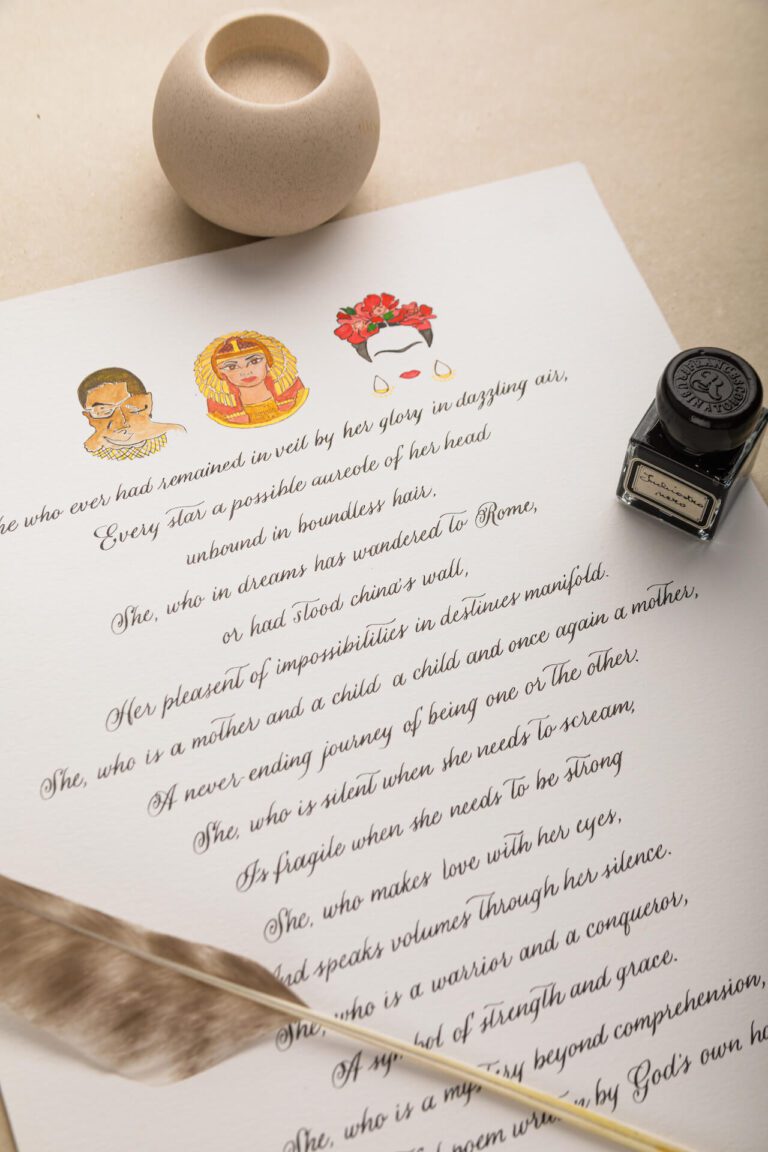 he who ever had remained in veil by her glory in dazzling air,
Every star a possible aureole of her head
unbound in boundless hair,
She, who in dreams has wandered to Rome,
or had stood china's wall,
Her pleasent of impossibilities in destinies manifold.
She, who is a mother and a child a child and once again a mother,
A never-ending journey of being one or the other.
She, who is silent when she needs to scream,
Is fragile when she needs to be strong
She, who makes love with her eyes,
And speaks volumes through her silence.
She, who is a warrior and a conqueror,
A symbol of strength and grace.
She, who is a mystery beyond comprehension,
poem written by God's own ha
Inchiostro
nero